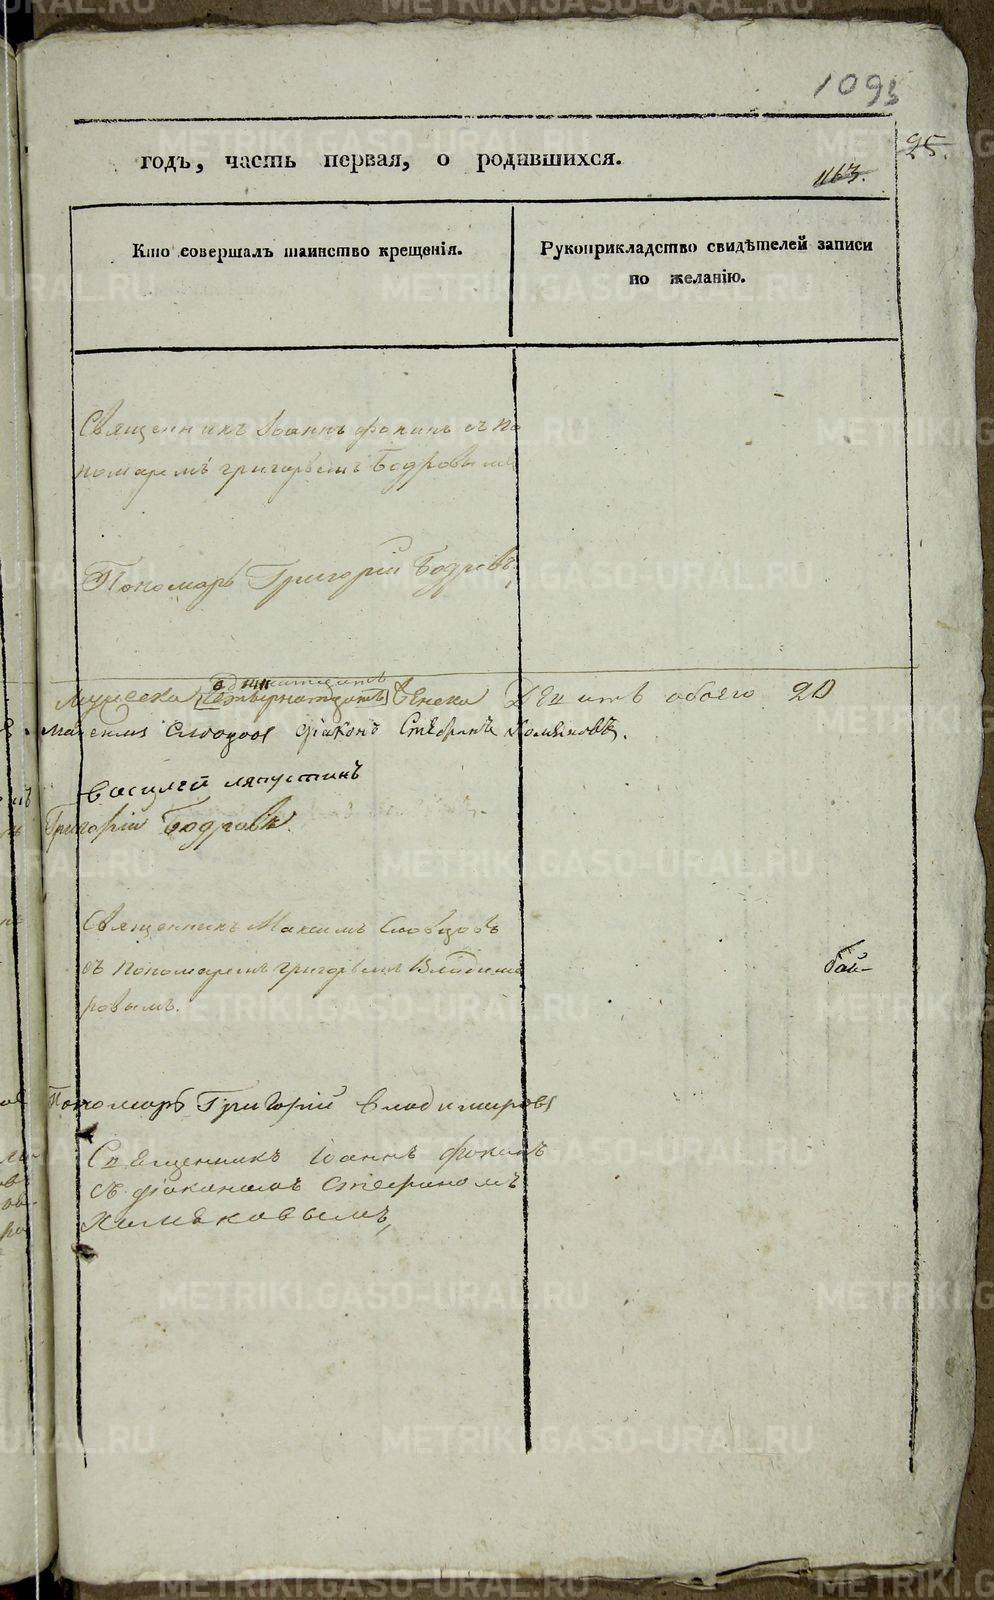 1093
годъ, часть первая, о родившихся.
95.
1163.
Кто совершалъ таинство крещенія.
Рукоприкладство свидѣтелей записи
по желанію.
Священникъ Іоаннъ Фокинъ съ по
номаремъ Григорьемъ Бодровымъ
Пономарь Григорій Бодровъ,
Мужеска Женска обоего 20
Слобцов діаконъ Стефанъ Холмяковъ.
Василей Ляпустинъ
Григорій Бодровъ.
Священникъ Максимъ Слобцовъ
съ пономаремъ Григорьемъ Владими
ровымъ.
Гай-
Пономарь Григорій Владимировъ
Священникъ Іоаннъ Фокинъ
съ діакономъ Стефаномъ
Холмяковымъ,
METRIKI.GASO-URAL.RU